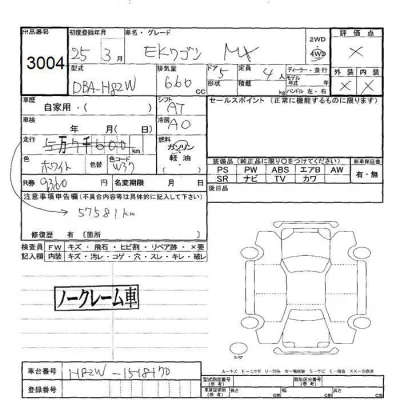 出品番号 初度登録年月 車名・グレード 2WD 評価点
3004 25年 3月 EKワゴン MX 4WD ×
型式 排気量 ドア 定員 ディーラー・並行 外装 内装
DBA-H82W 660cc 5 4人 ハンドル 左・右 × ×
車歴 シフト セールスポイント (正常に機能するものに限ります)
自家用・( ) AT
車検 冷房
年 月( ) AC
走行 燃料
km ガソリン
色 色替 色コード 軽油
ホワイト W37 ( )
装備品 (純正品に限り○をつけてください) 新車保証書
PS PW ABS エアB AW 有・無
R券 9360円 名変期限 月 日
SR ナビ TV カワ
注意事項申告欄 (不具合内容等は具体的に記入して下さい) 後日品
57581km
修復歴 有 [箇所 ]
検査員 FW キズ・飛石・ヒビ割・リペア跡・×要
記入欄 内装 キズ・汚レ・コゲ・穴・スレ・キレ・破レ
ノークレーム車
車台番号 H82W-1518170
登録番号